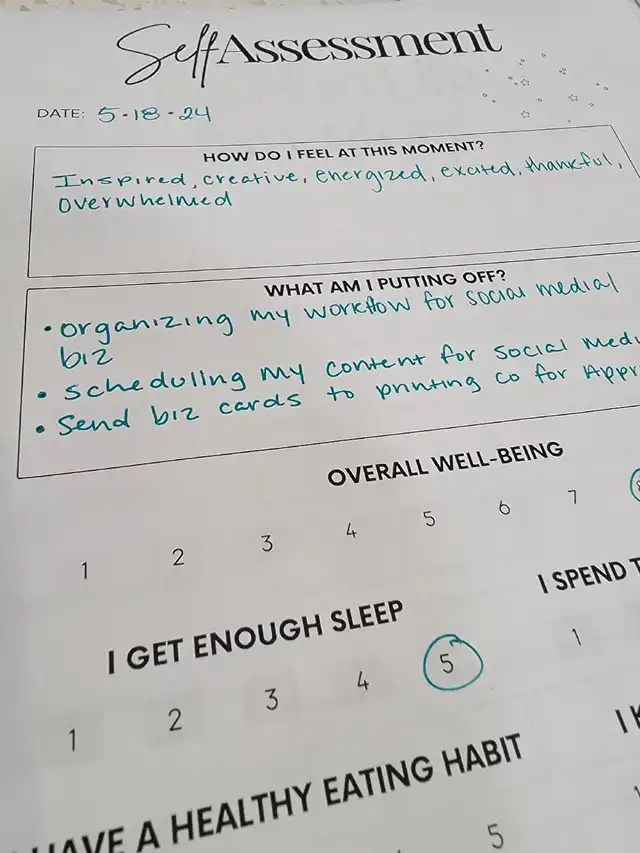 Self Assessment
DATE: 5-18-24
HOW DO I FEEL AT THIS MOMENT?
Inspired, creative, energized, excited, thankful,
overwhelmed
WHAT AM I PUTTING OFF?
• organizing my workflow for social medial
biz
• scheduling my content for social Medi
• Send biz cards to printing co for Appr
OVERALL WELL-BEING
1 2 3 4 5 6 7
I GET ENOUGH SLEEP
1 2 3 4 5
I SPEND T
1
HAVE A HEALTHY EATING HABIT
5
I K